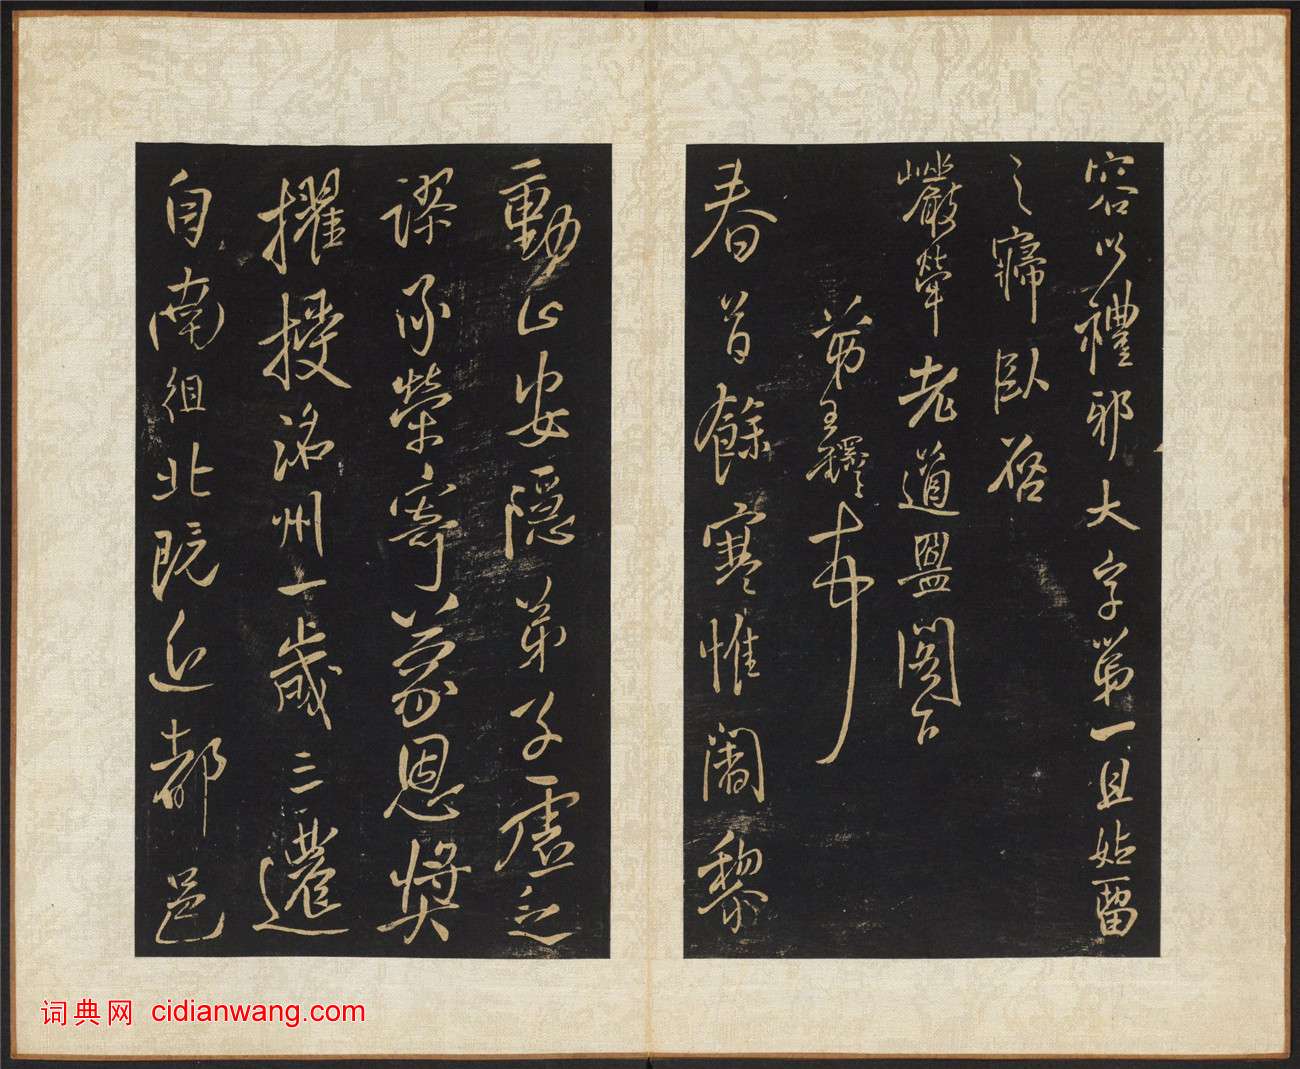 容以禮邪大字第一且姑留
之㾕臥啓
嚴犖老道盟閣下
弟王鐸
春首餘寒惟闍黎
動止安隱弟子虛乏
謬承榮寄蒙恩奬
擢授洺州一歲三遷
自南徂北既近都邑
词典网 cidianwang.com